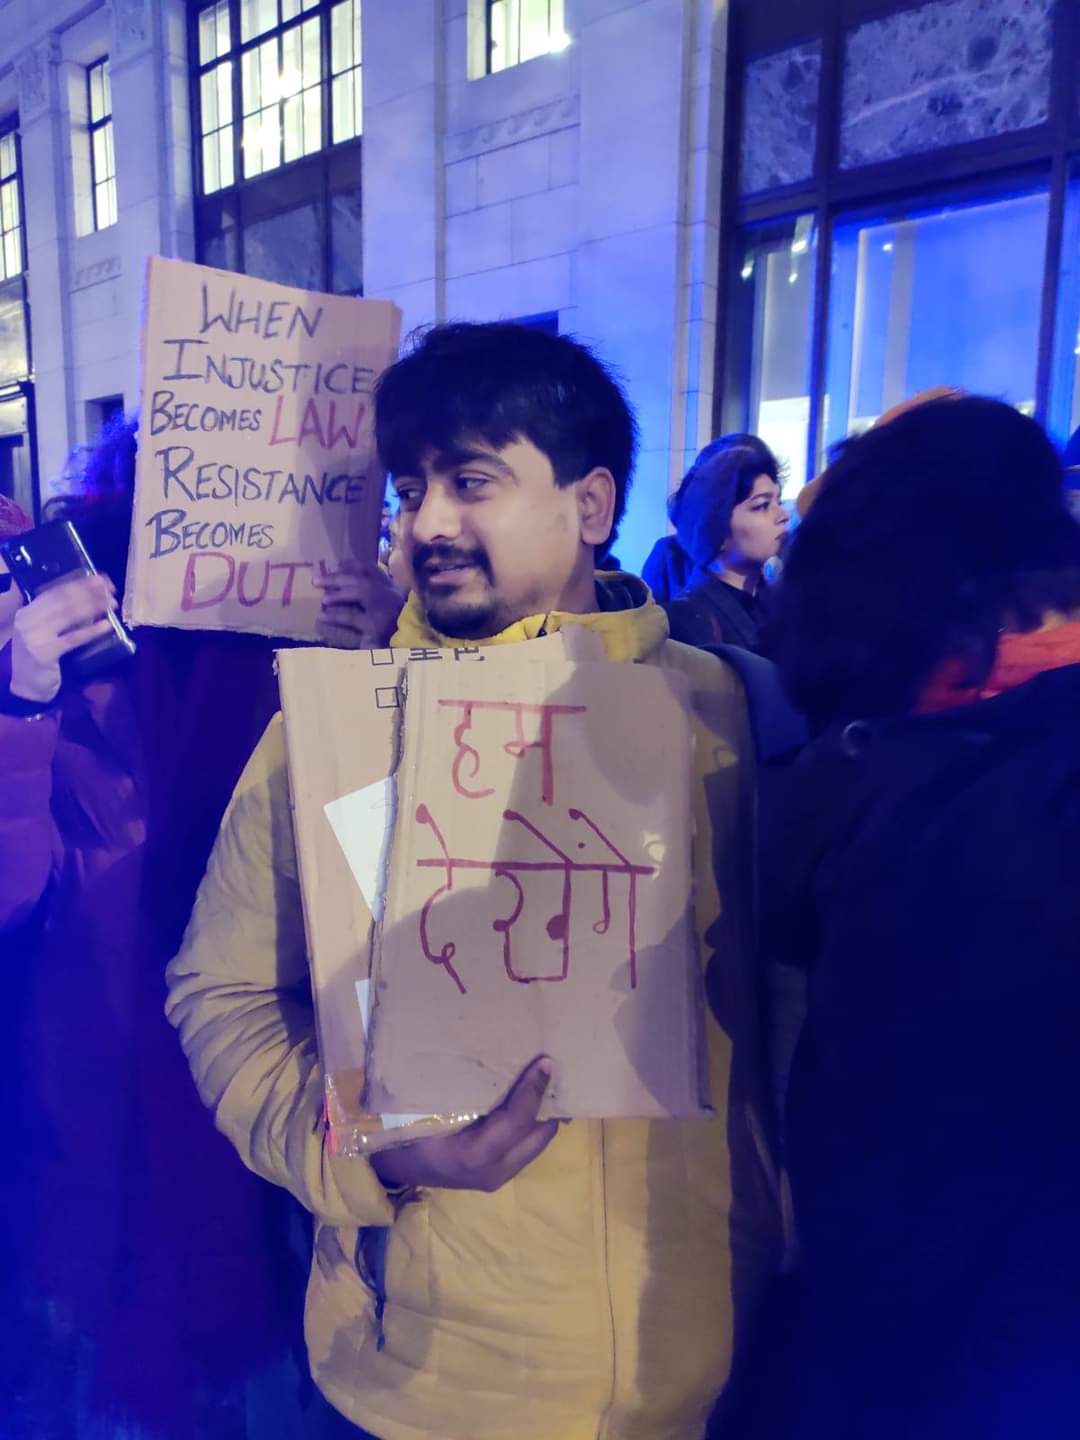 WHEN
INJUSTICE
BECOMES LAW
RESISTANCE
BECOMES
DUTY
हम
देखेंगे